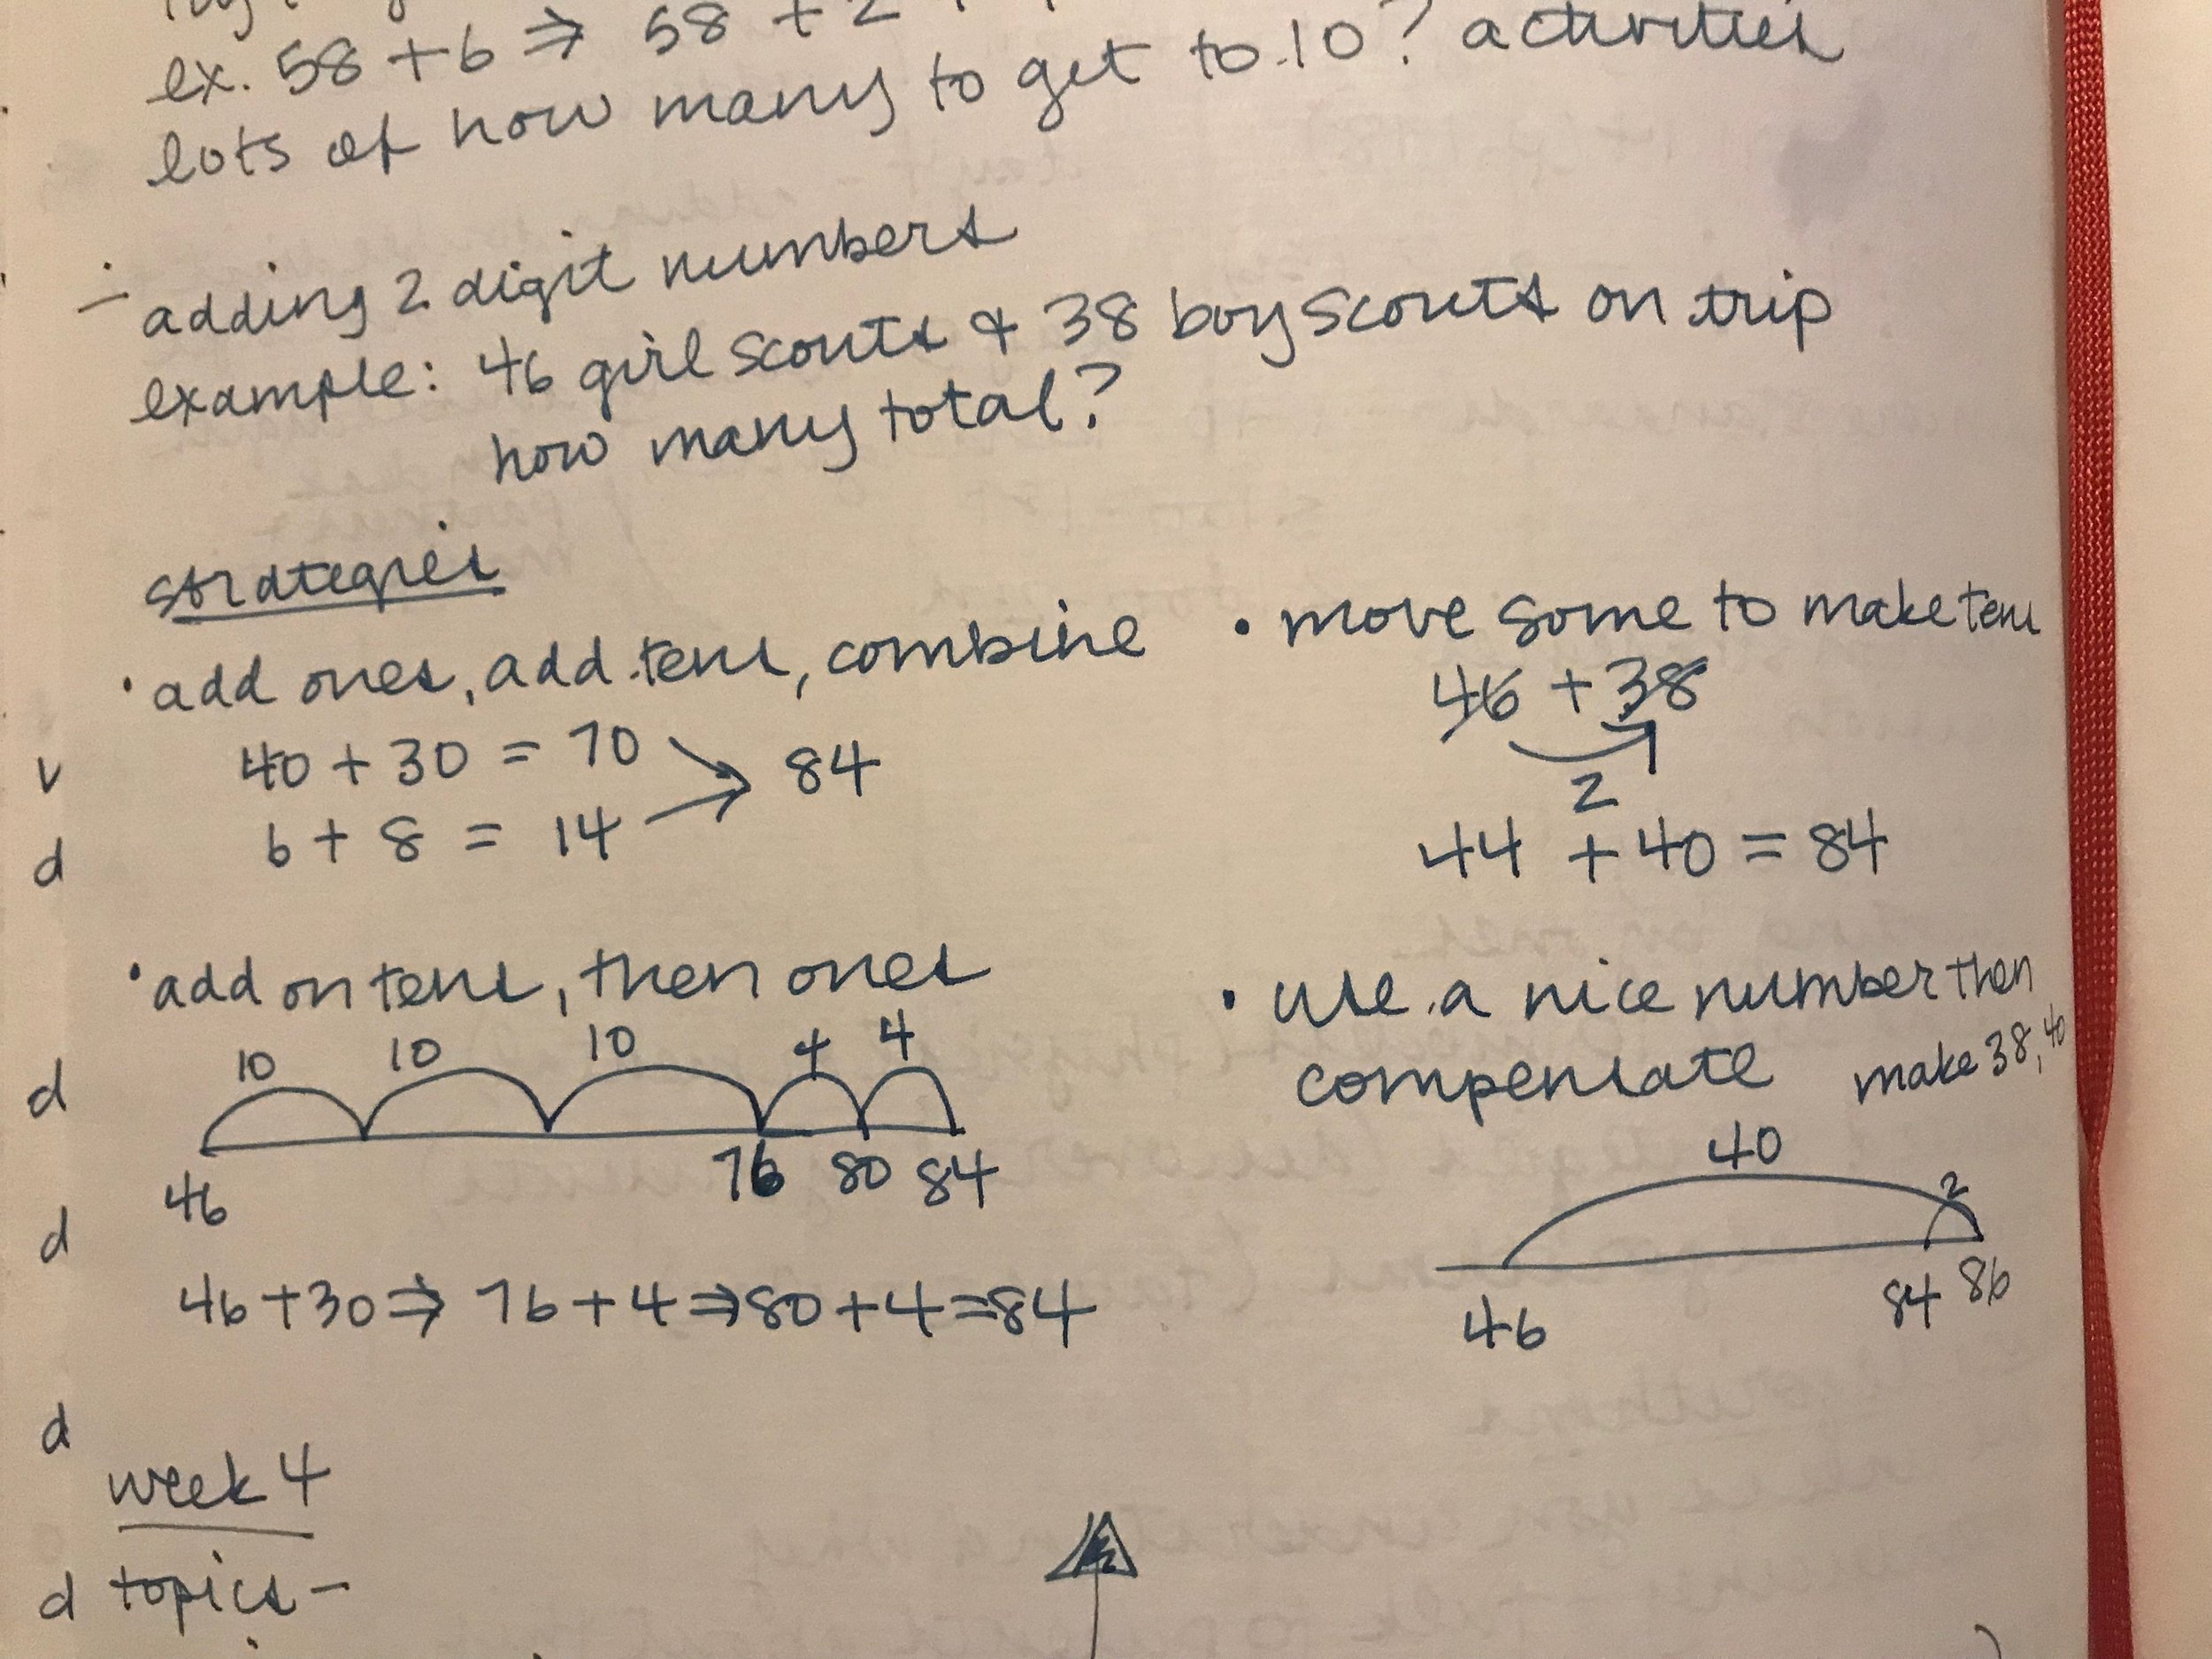 ex. 58 + 6 ⇒ 58 + 2
lots of how many to get to 10? activities
- adding 2 digit numbers
example: 46 girl scouts & 38 boy scouts on trip
how many total?
strategies
• add ones, add tens, combine
40 + 30 = 70
84
6 + 8 = 14
• move some to make tens
46 + 38
2
44 + 40 = 84
• add on tens, then ones
10 10 10 4 4
46 76 80 84
46 + 30 ⇒ 76 + 4 ⇒ 80 + 4 = 84
• use a nice number then
compensate make 38, 40
40
2
46 84 86
week 4
topics -
v
d
d
d
d
d